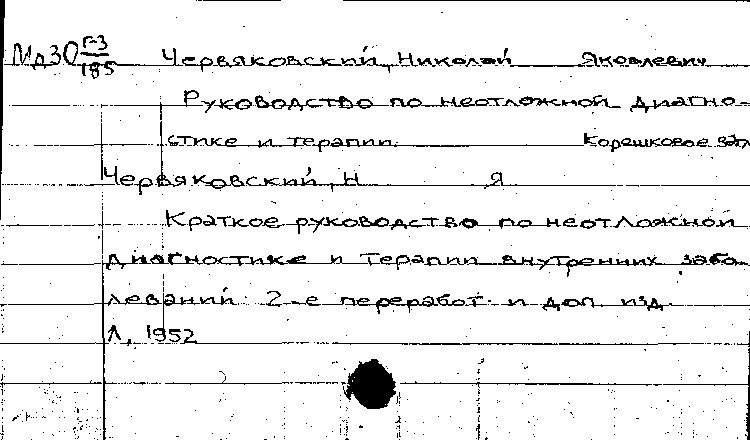 Мд30 Г-3/185 Червяковский, Николай Яковлевич
Руководство по неотложной диагно-
стике и терапии. Корешковое загл
Червяковский, Н Я
Краткое руководство по неотложной
диагностике и терапии внутренних забо-
леваний. 2-е переработ. и доп. изд.
Л, 1952